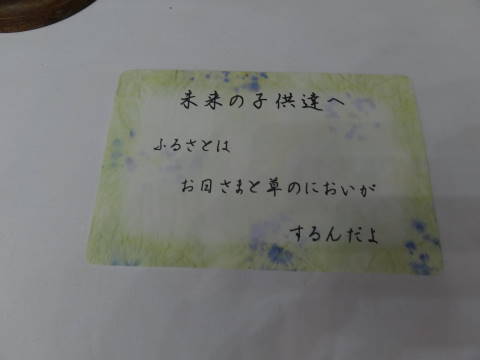 未来の子供達へ
ふるさとは
お日さまと草のにおいが
するんだよ